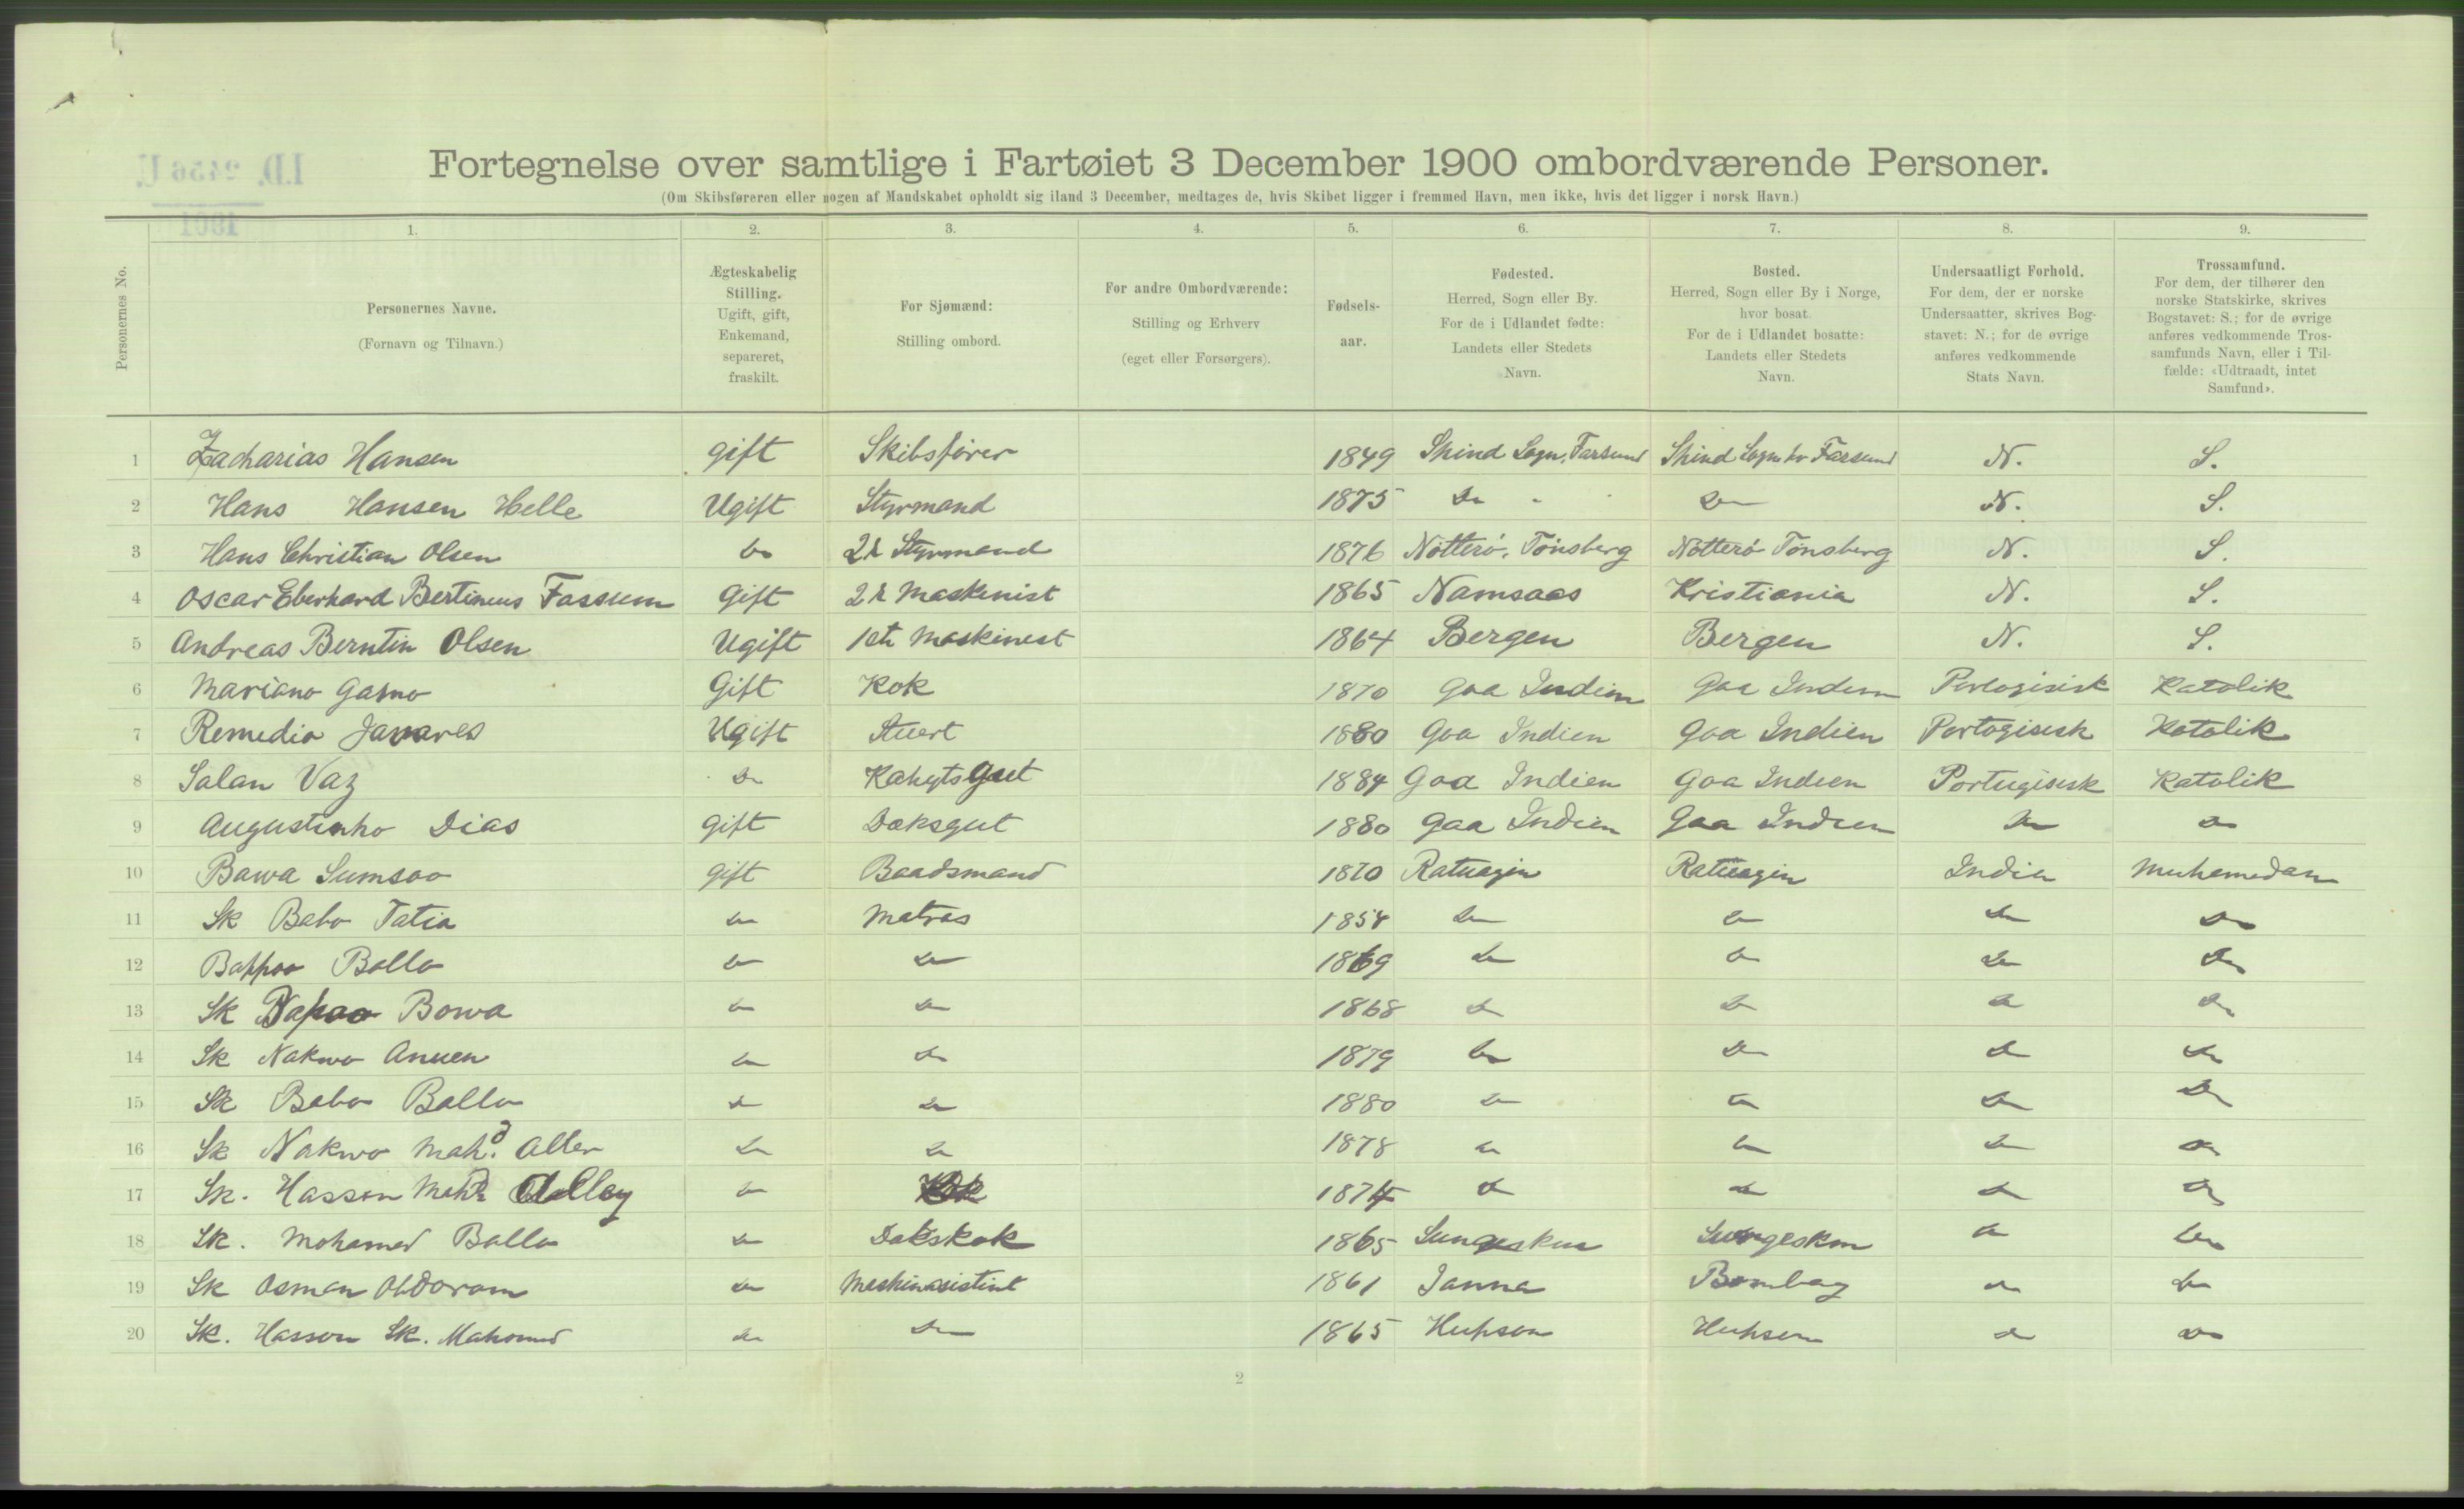 Fortegnelse over samtlige i Fartøiet 3 December 1900 ombordværende Personer.
(Om Skibsføreren eller nogen af Mandskabet opholdt sig iland 3 December, medtages de, hvis Skibet ligger i fremmed Havn, men ikke, hvis det ligger i norsk Havn.)
Personernes No.
1.
Personernes Navne.
(Fornavn og Tilnavn.)
2.
Ægteskabelig
Stilling.
Ugift, gift,
Enkemand,
separeret,
fraskilt.
3.
For Sjømænd:
Stilling ombord.
4.
For andre Ombordværende:
Stilling og Erhverv
(eget eller Forsørgers).
5.
Fødsels-
aar.
6.
Fødested.
Herred, Sogn eller By.
For de i Udlandet fødte:
Landets eller Stedets
Navn.
7.
Bosted.
Herred, Sogn eller By i Norge,
hvor bosat.
For de i Udlandet bosatte:
Landets eller Stedets
Navn.
8.
Undersaatligt Forhold.
For dem, der er norske
Undersaatter, skrives Bog-
stavet: N.; for de øvrige
anføres vedkommende
Stats Navn.
9.
Trossamfund.
For dem, der tilhører den
norske Statskirke, skrives
Bogstavet: S.; for de øvrige
anføres vedkommende Tros-
samfunds Navn, eller i Til-
fælde: «Udtraadt, intet
Samfund».
1 Zacharias Hansen gift Skibsfører 1849 Spind Sogn, Farsund Spind Sogn Farsund N. S.
2 Hans Hansen Helle Ugift Styrmand 1875 Do Do N. S.
3 Hans Christian Olsen Do 2d Styrmand 1876 Nötterö, Tönsberg Nötterö Tönsberg N. S.
4 Oscar Eberhard Bertineus Fossum Gift 2d Maskinist 1865 Namsaas Kristiania N. S.
5 Andreas Berntin Olsen Ugift 1ste Maskinest 1864 Bergen Bergen N. S.
6 Mariano Gasmo Gift Kok 1870 Goa Indien Goa Indien Portogisisk Katolik
7 Remedio Javares Ugift Stuert 1880 Goa Indien Goa Indien Portogisisk Katolik
8 Salan Vaz Do Kahytsgut 1884 Goa Indien Goa Indien Portugisisk Katolik
9 Augustinho Dias gift Dæksgut 1880 Goa Indien Goa Indien Do Do
10 Bawa Sumsoo gift Baadsmand 1870 Ratuagin Ratuagin India Muhamedan
11 Sk Babo Tatia Do Matros 1858 Do Do Do Do
12 Bappoo Ballo Do Do 1869 Do Do Do Do
13 Sk Bowa Do Do 1868 Do Do Do Do
14 Sk Nakwo Do Do 1879 Do Do Do Do
15 Sk Babo Ballo Do Do 1880 Do Do Do Do
16 Sk Nakwo Mahd. Aller Do Do 1878 Do Do Do Do
17 Sk. Hassan Mahd Alley Do 1874 Do Do Do Do
18 Sk. Mohamed Ballo Do Dækskok 1865 Do Do
19 Sk Osman Abdoram Do Maskinasistint 1861 Janna Bombay Do Do
20 Sk. Hasson Sk. Mahomed Do Do 1865 Hupson Hupson Do Do
2